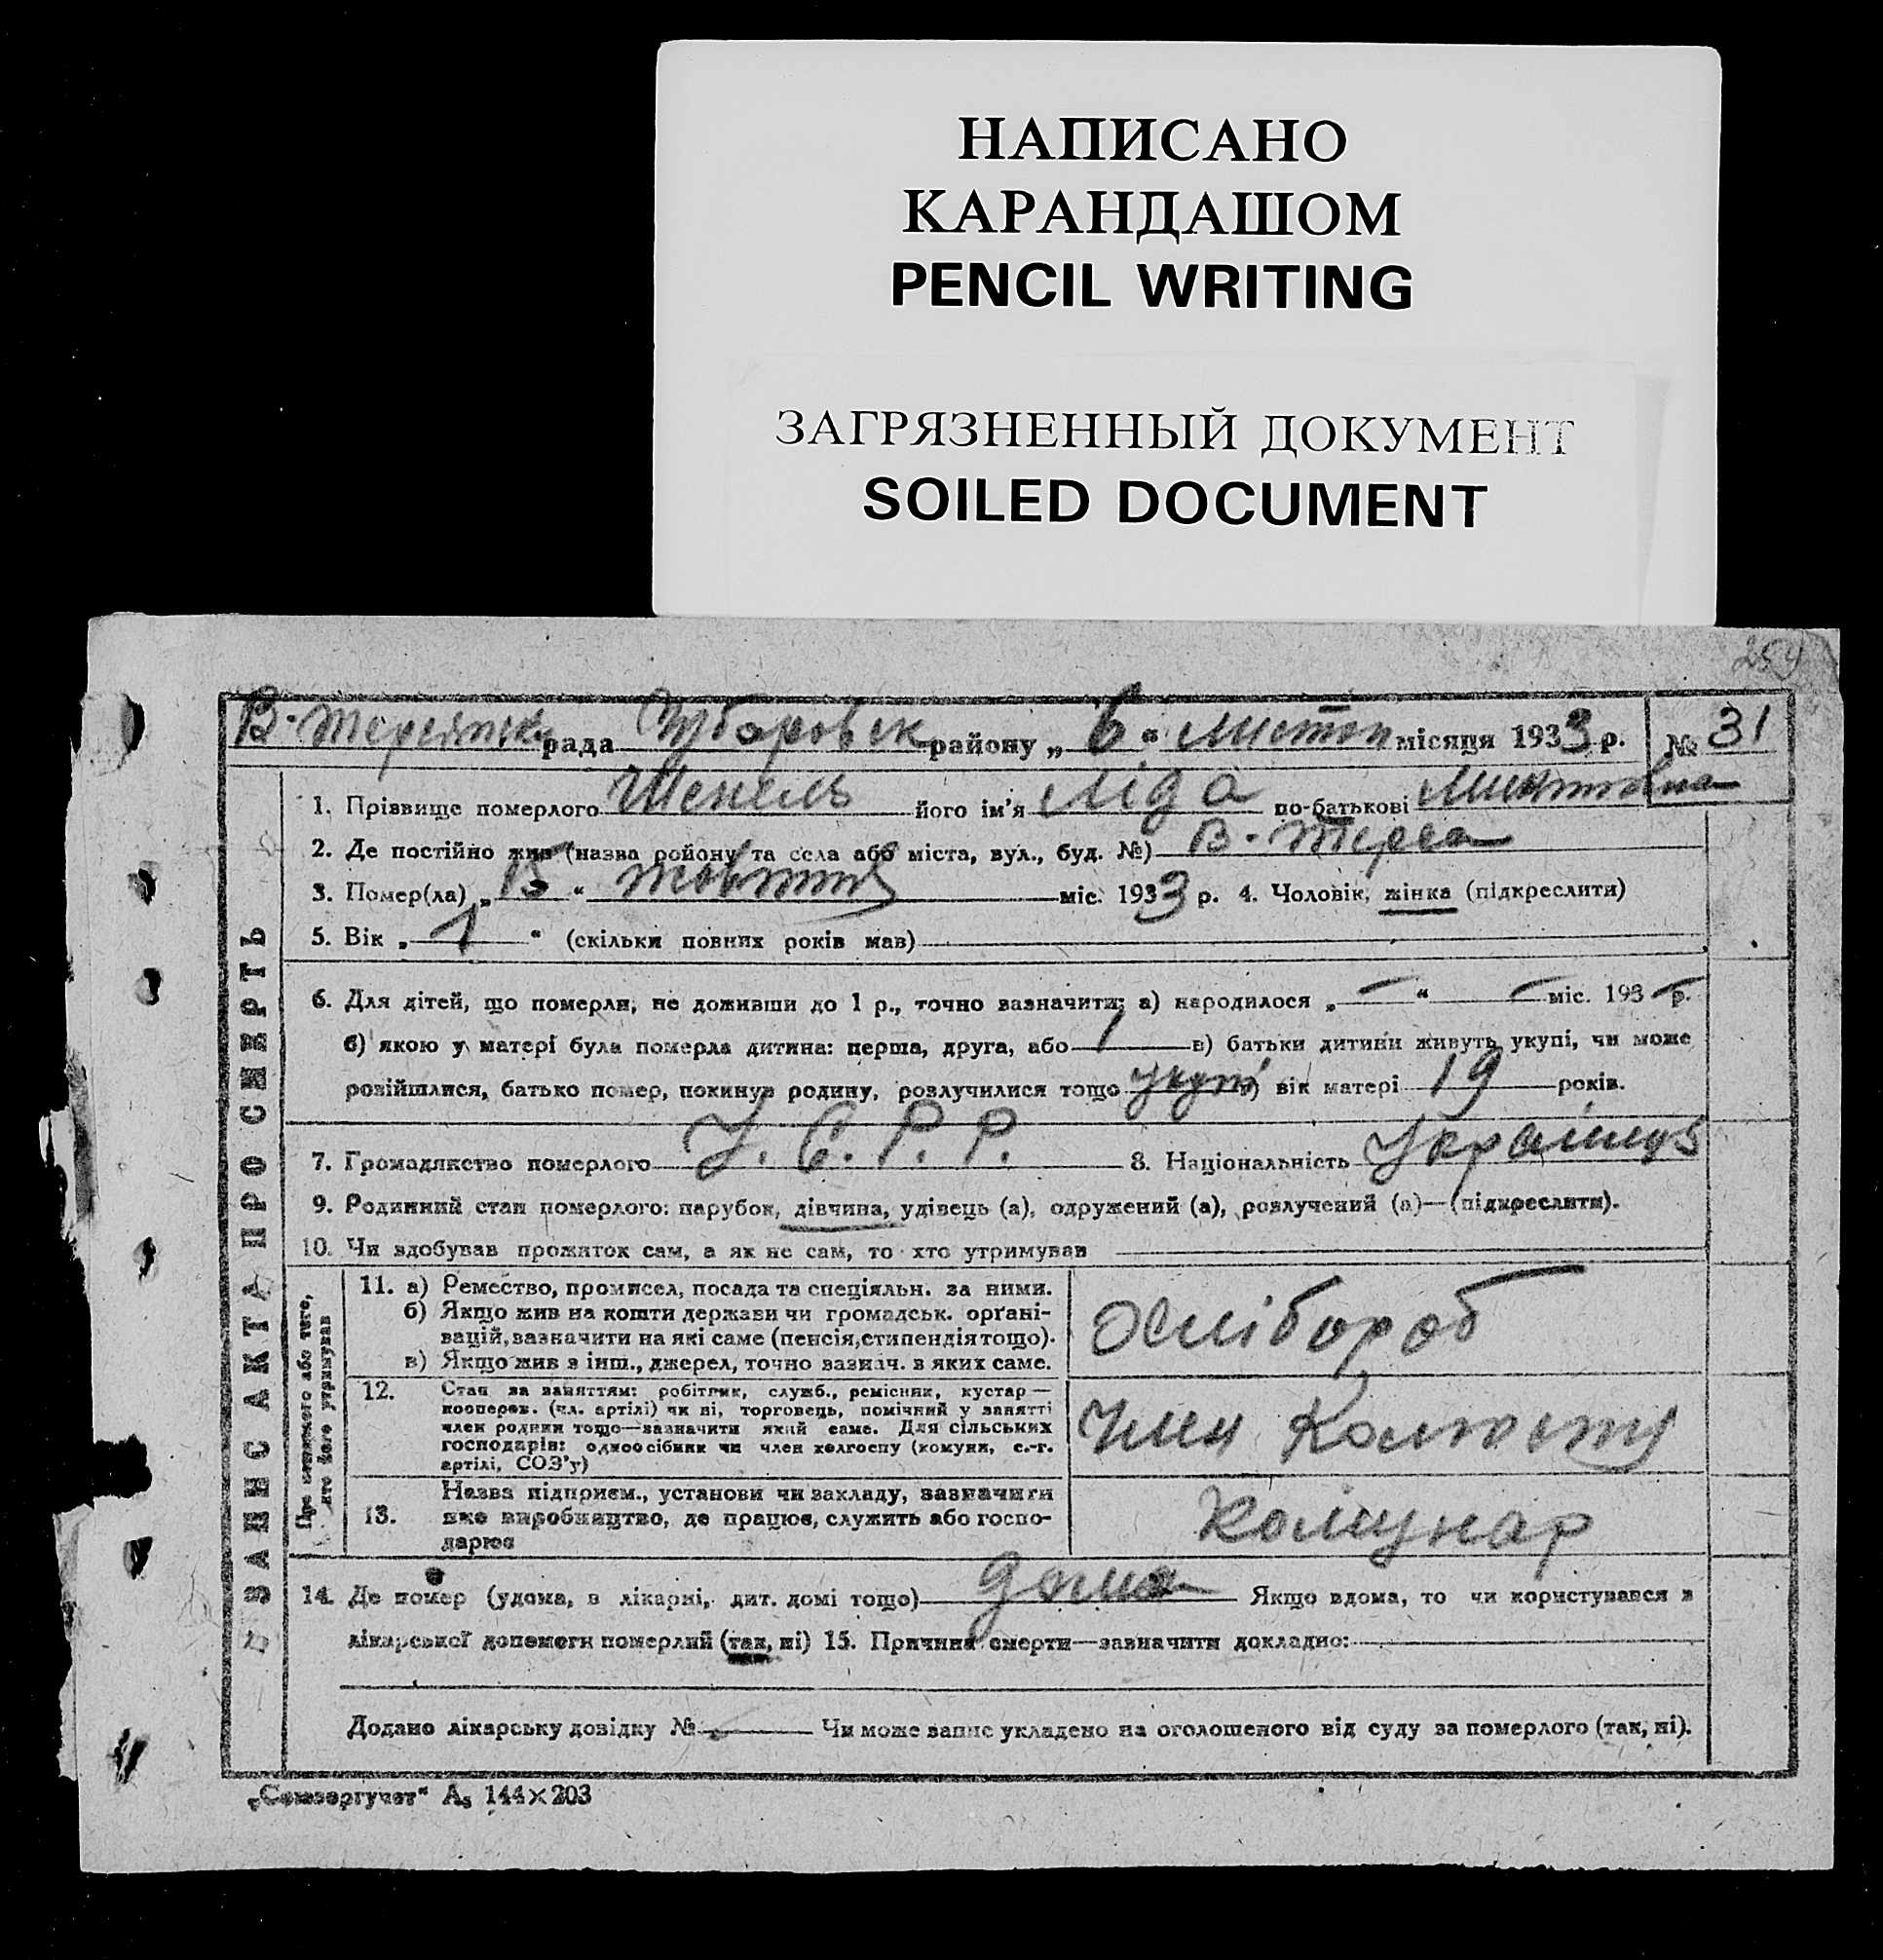 НАПИСАНО
КАРАНДАШОМ
PENCIL WRITING
ЗАГРЯЗНЕННЫЙ ДОКУМЕНТ
SOILED DOCUMENT
254
рада району „ 6 “ листоп місяця 1933 р. № 31
ЗАПИС АКТА ПРО СМЕРТЬ
1. Прізвище померлого його ім'я Ліда по-батькові
2. Де постійно жив (назва ройону та села або міста, вул., буд. №)
3. Помер(ла) „ “ жовтня міс. 1933 р. 4. Чоловік, жінка (підкреслити)
5. Вік „ 1 “ (скільки повних років мав)
6. Для дітей, що померли, не доживши до 1 р., точно зазначити: а) народилося „ — “ — міс. 193 — р.
б) якою у матері була померла дитина: перша, друга, або 1 в) батьки дитини живуть укупі, чи може
розійшлися, батько помер, покинув родину, розлучилися тощо укупі г) вік матері 19 років.
7. Громадянство померлого У. С. Р. Р. 8. Національність
9. Родинний стан померлого: парубок, дівчина, удівець (а), одружений (а), розлучений (а)—(підкреслити).
10. Чи здобував прожиток сам, а як не сам, то хто утримував
Про мертвого або того, хто його утримував
11. а) Ремество, промисел, посада та спеціяльн. за ними.
б) Якщо жив на кошти держави чи громадськ. орґані-
зацій, зазначити на які саме (пенсія, стипендія тощо).
в) Якщо жив з інш., джерел, точно зазнач. з яких саме.
хлібороб
12. Стан за заняттям: робітник, служб., ремісник, кустар—
кооперов. (чл. артілі) чи ні, торговець, помічний у занятті
член родини тощо—зазначити який саме. Для сільських
господарів: одноосібник чи член колгоспу (комуни, с.-г.
артілі, СОЗ'у)
член колгоспу
13. Назва підприєм., установи чи закладу, зазначити
яке виробництво, де працює, служить або госпо-
дарює
Комунар
14. Де помер (удома, в лікарні, дит. домі тощо) дома Якщо вдома, то чи користувався з
лікарської допомоги померлий (так, ні) 15. Причина смерти—зазначити докладно:
Додано лікарську довідку № — Чи може запис укладено на оголошеного від суду за померлого (так, ні).
„Союзоргучет“ А₅ 144×203